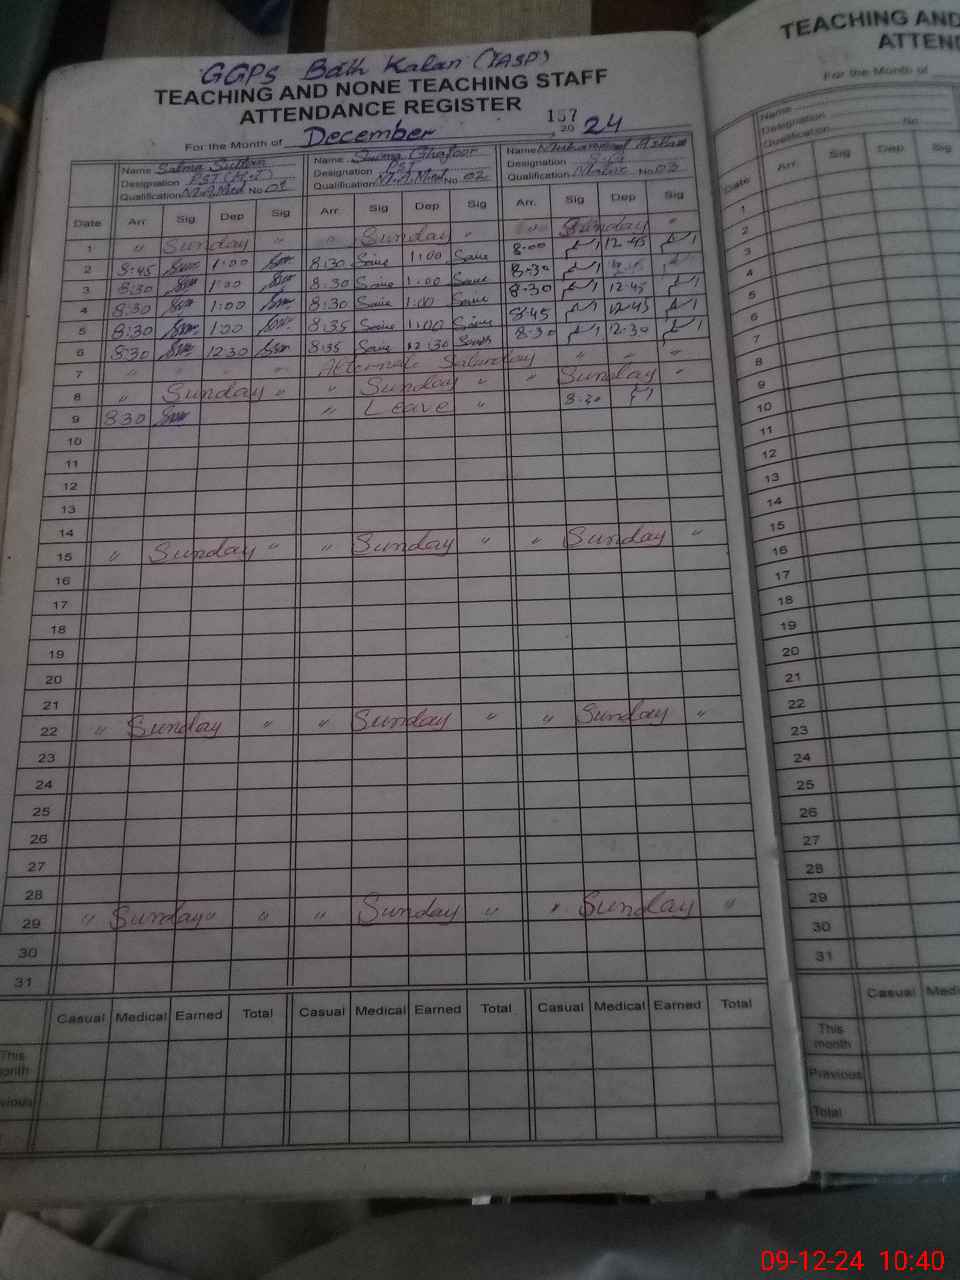 GGPS Bath Kalan (TASP)
TEACHING AND NONE TEACHING STAFF
ATTENDANCE REGISTER
157
For the Month of December , 20 24
Name Salma Name Name Muhammad Aslam
Designation PST Designation PST Designation
Qualification No 01 Qualification No 02 Qualification No 03
Date Arr. Sig Dep Sig Arr. Sig Dep Sig Arr. Sig Dep Sig
1 " Sunday " " Sunday " Sunday "
2 8:45 1:00 8:30 1:00 8:00 12-45
3 8:30 1:00 8:30 1:00 8-30
4 8:30 1:00 8:30 1:00 8-30 12-45
5 8:30 1:00 8:35 1:00 8-45 12-45
6 8:30 12:30 8:35 12:30 8-30 12-30
7 " "
8 " Sunday " " Sunday " " Sunday "
9 8:30 " Leave "
10
11
12
13
14
15 " Sunday " " Sunday " " Sunday "
16
17
18
19
20
21
22 " Sunday " " Sunday " " Sunday "
23
24
25
26
27
28
29 " Sunday " " " Sunday " " Sunday "
30
31
Casual Medical Earned Total Casual Medical Earned Total Casual Medical Earned Total
This
onth
vious
TEACHING AND
ATTEN
For the Month of
Name
Designation
Qualification No
Date Arr. Sig Dep. Sig
1
2
3
4
5
6
7
8
9
10
11
12
13
14
15
16
17
18
19
20
21
22
23
24
25
26
27
28
29
30
31
Casual Med
This
month
Previous
Total
09-12-24 10:40